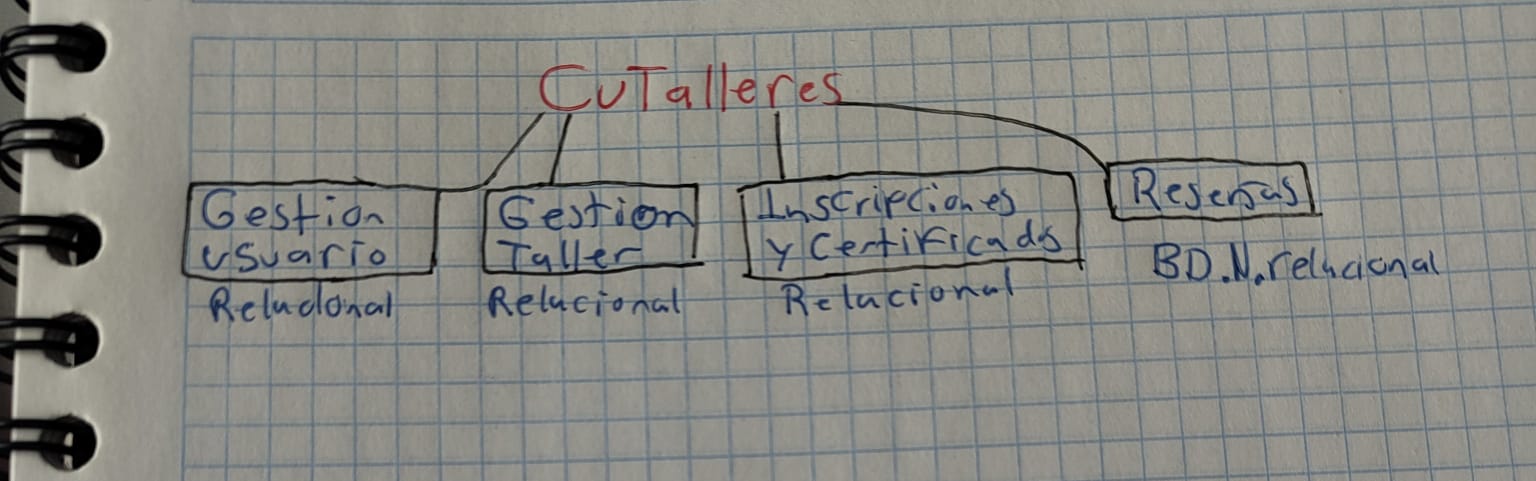 CuTalleres
Gestion
usuario
Relacional
Gestion
Taller
Relacional
Inscripciones
y Certificados
Relacional
Reseñas
BD.N.relacional